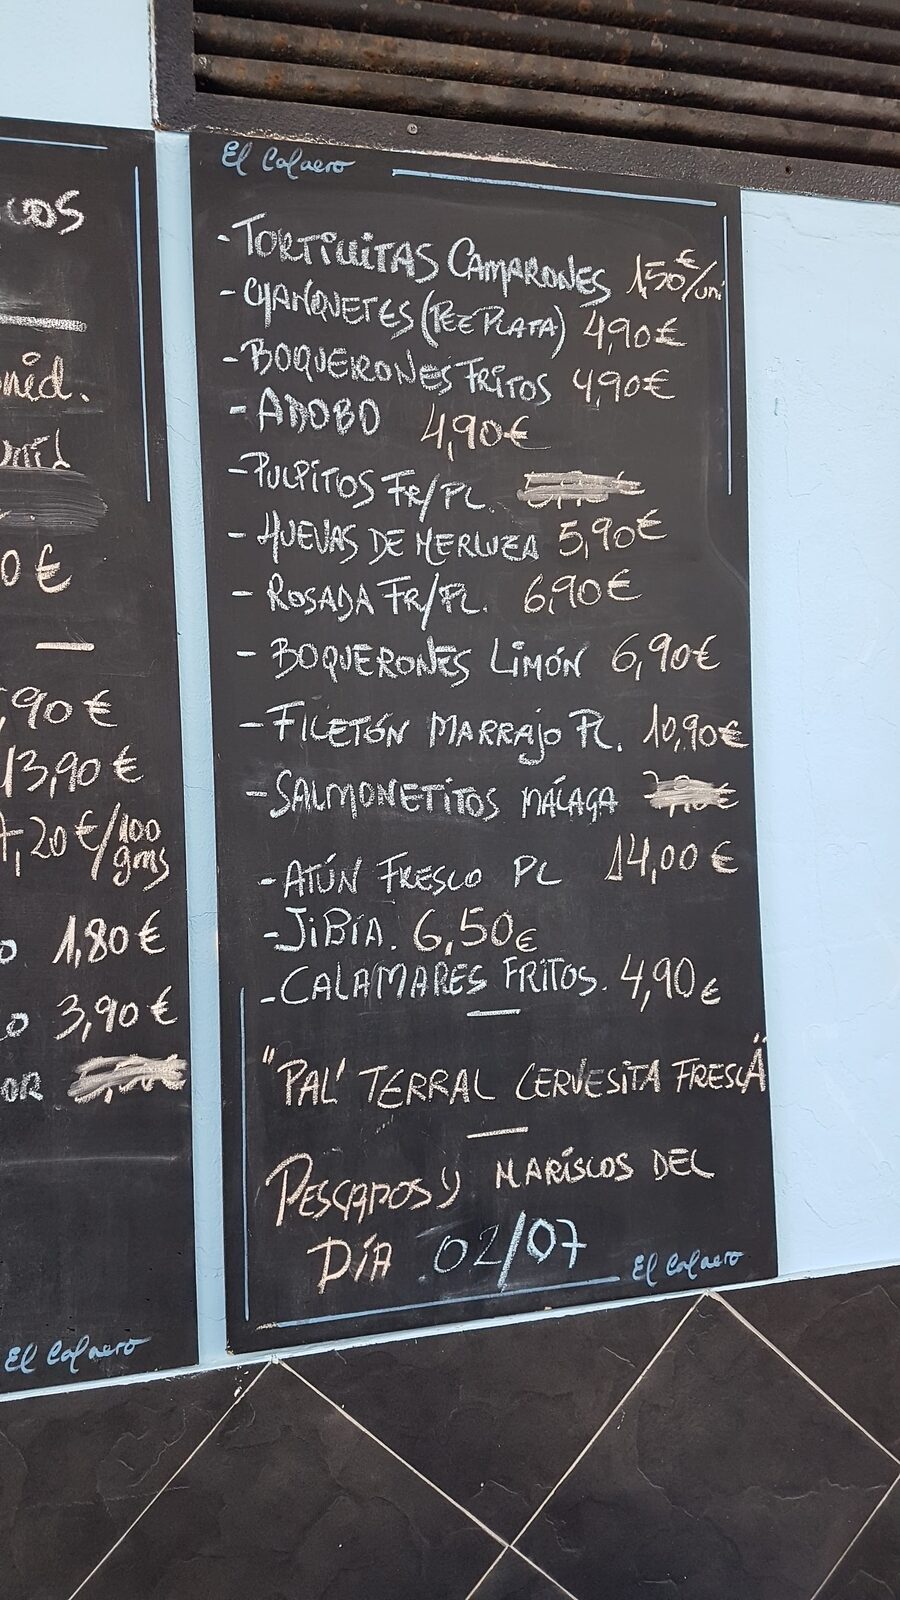 El Calaero
-TORTILLITAS CAMARONES 1,50€/uni
-CHANQUETES (PEZ PLATA) 4,90€
-BOQUERONES FRITOS 4,90€
-ADOBO 4,90€
-PULPITOS FR/PL.
-HUEVAS DE MERLUZA 5,90€
-ROSADA FR/PL. 6,90€
-BOQUERONES LIMÓN 6,90€
-FILETÓN MARRAJO PL. 10,90€
-SALMONETITOS MÁLAGA
-ATÚN FRESCO PL 14,00€
-JIBIA. 6,50€
-CALAMARES FRITOS. 4,90€
"PAL' TERRAL CERVESITA FRESCA"
PESCADOS Y MARISCOS DEL
DÍA 02/07
El Calaero
cos
nid.
unid
0€
,90€
13,90€
,20€/100
gms
o 1,80€
o 3,90€
OR
El Calaero